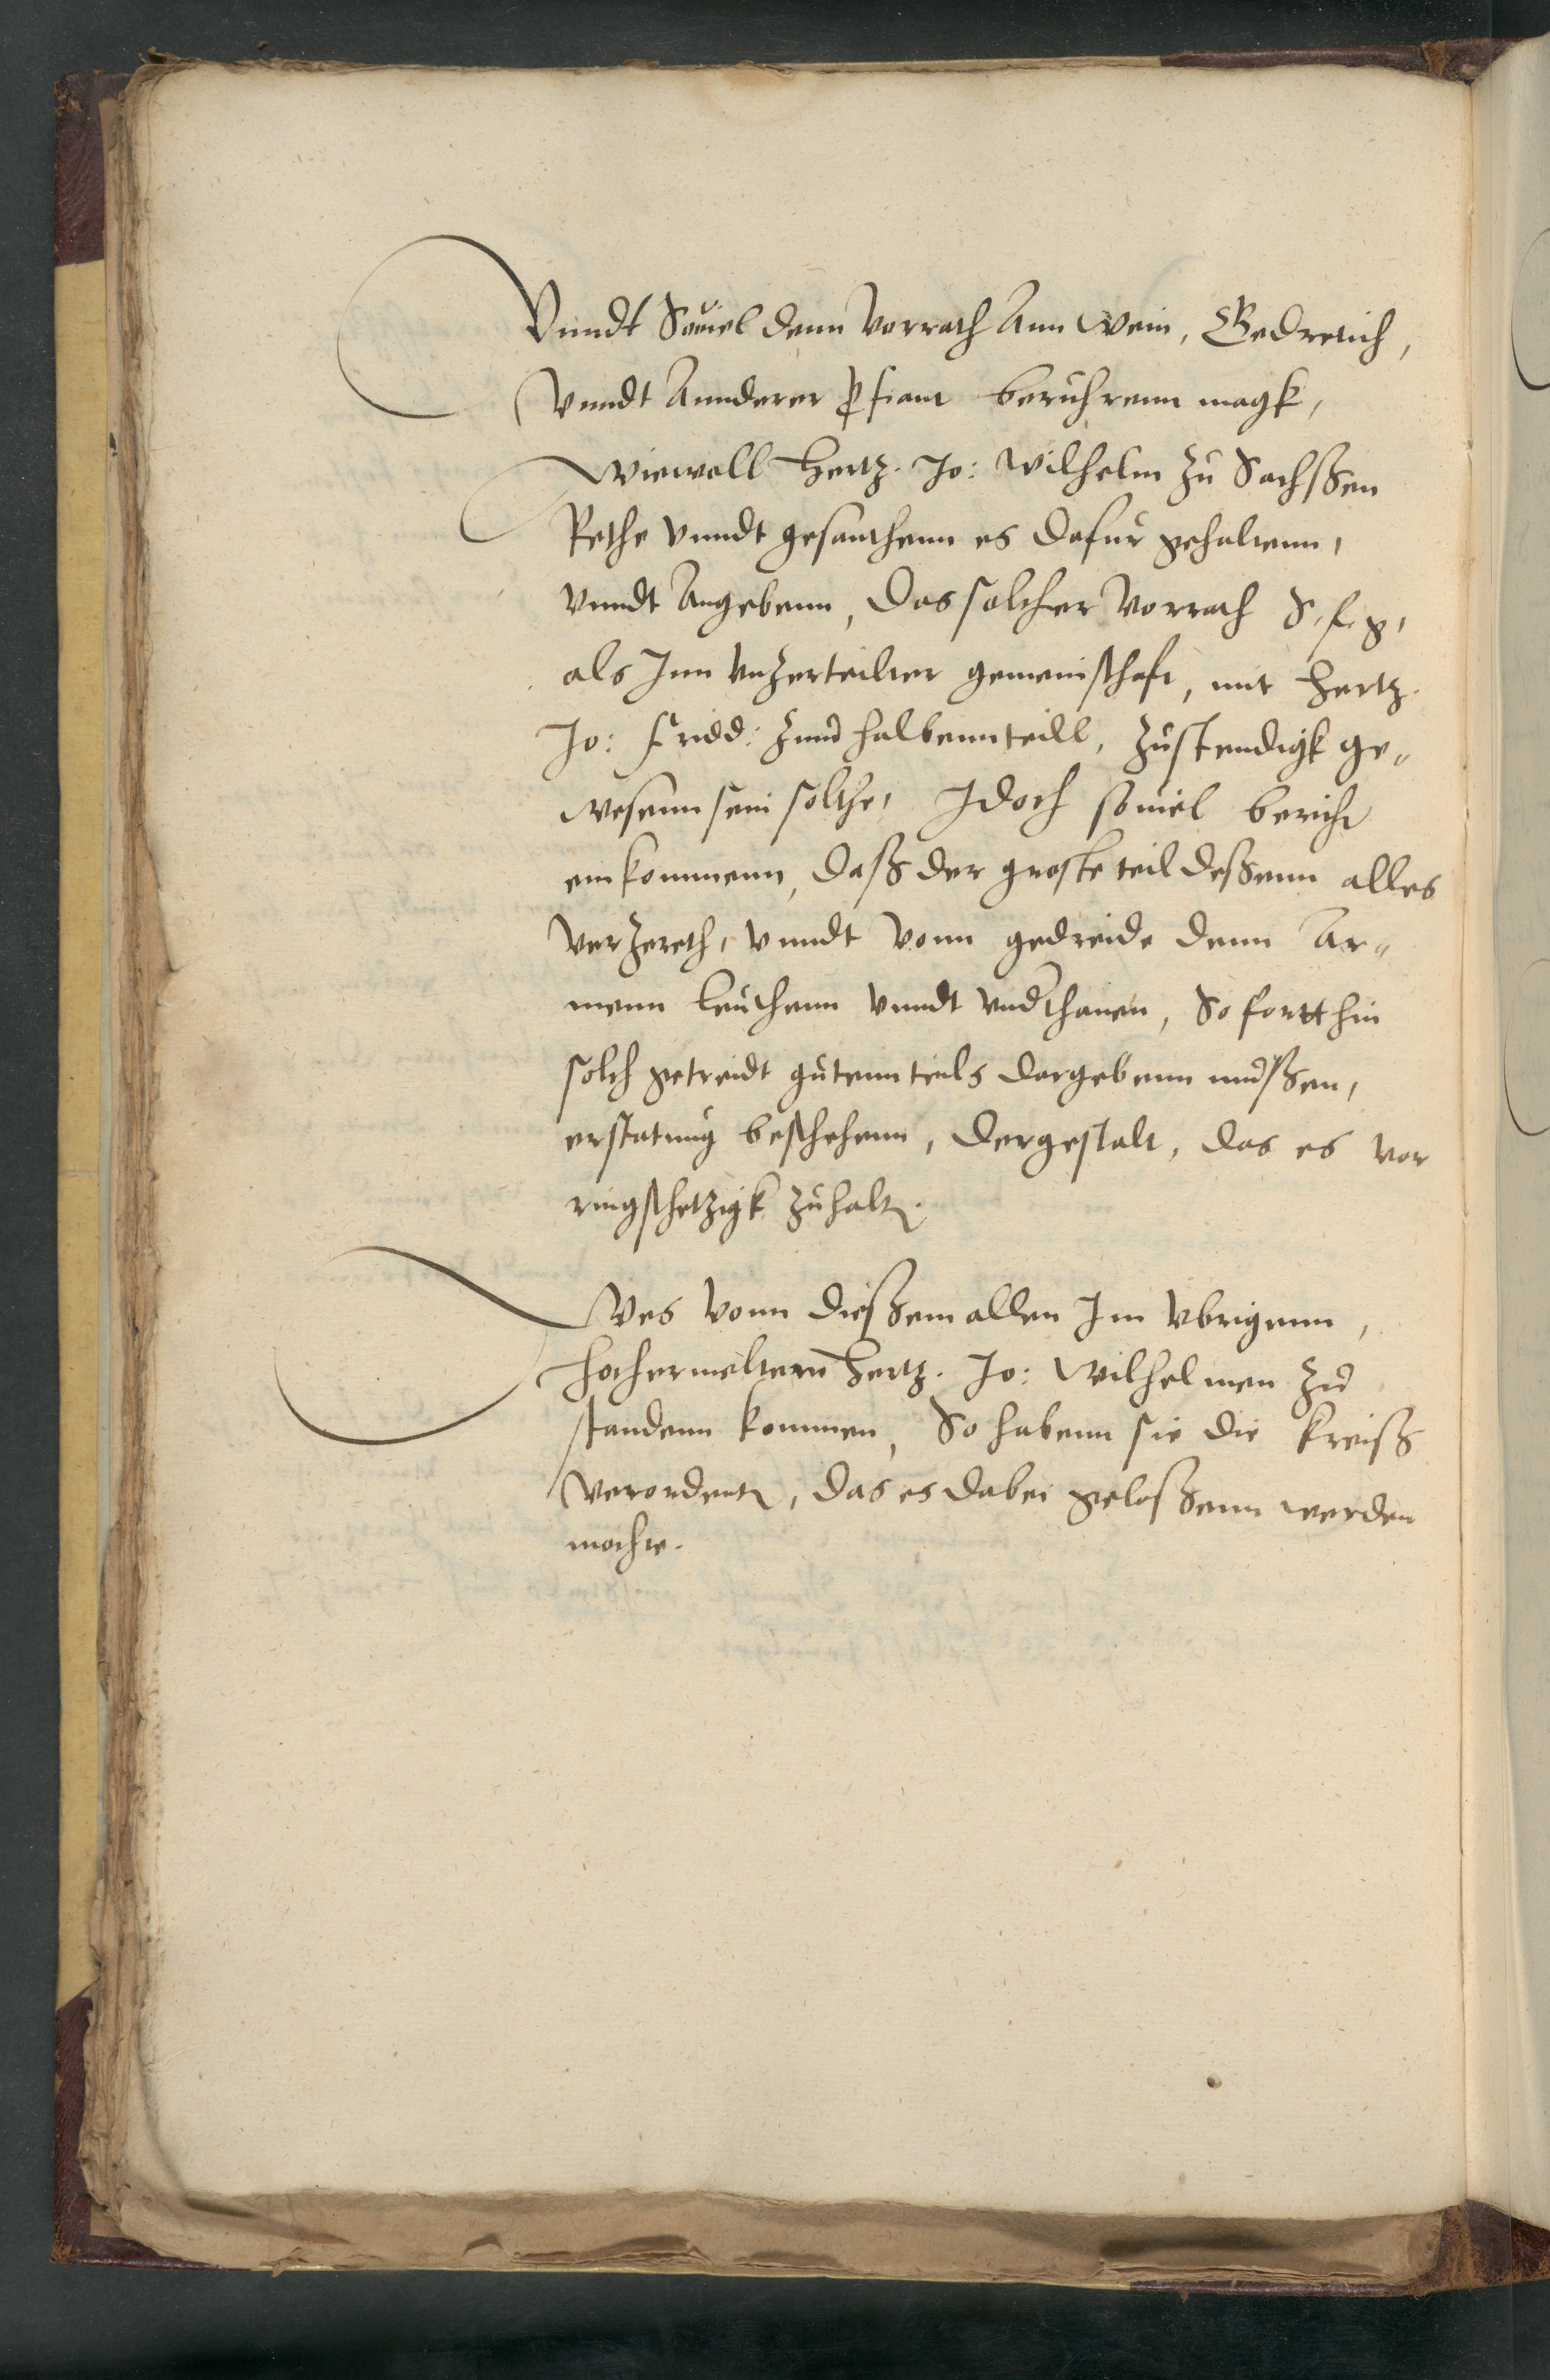 Vnndt Souiel denn Vorrath Ann Wein, Gedreich,
Vnndt Annderer ꝓfiant beruhrenn magk,
Wiewoll Hertz. Jo: Wilhelm zu Sachßen
Rethe Vnndt gesanthenn es dafur gehaltenn,
Vnndt Angebenn, Das solcher Vorrath S. f. g.
als Jnn Vnzerteilter gemeinschafft, mit Hertz.
Jo: Fridd: zum halbenn teill, zustendigk ge„
wesenn sein solthe, Jdoch souiel bericht
einkommenn, daß der groste teil deßenn alles
Verzereth, Vnndt Vonn gedreide denn Ar„
menn leuthenn Vnndt Vndthanen, So fortt hin
solch getreidt gutenn teils dargebenn mußen,
erstatung beschehenn, Dergestalt, das es vor
ringschetzigk zuhaltn.
Wes Vonn dießem allen Jm Vbrigenn,
Hochermeltenn Hertz. Jo: Wilhelmen zu
standenn kommen, So habenn sie die Kreiß
Verordentn, das es dabei geloßenn werden
mochte.